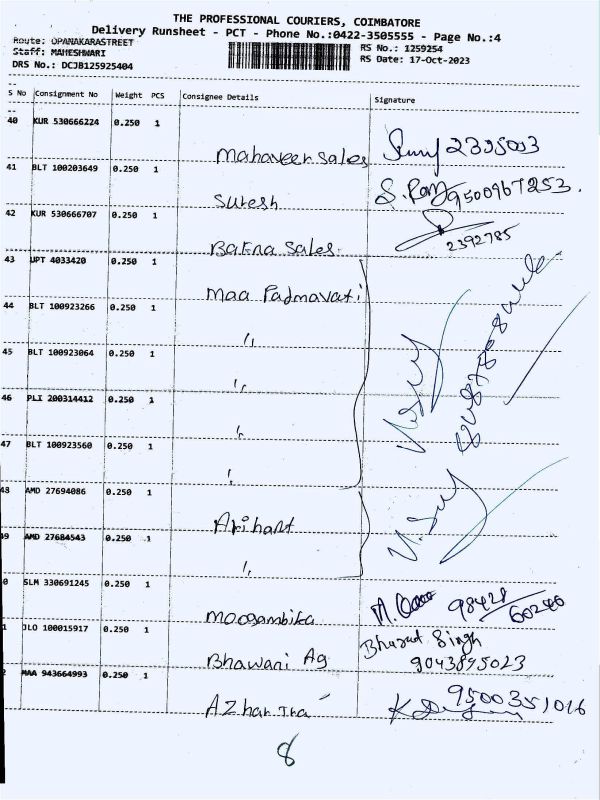 THE PROFESSIONAL COURIERS, COIMBATORE
Delivery Runsheet - PCT - Phone No.:0422-3505555 - Page No.:4
Route: OPANAKARASTREET
Staff: MAHESHWARI
DRS No.: DCJB125925404
RS No.: 1259254
RS Date: 17-Oct-2023
S No Consignment No Weight PCS Consignee Details Signature
40 KUR 530666224 0.250 1
Mahaveer Sales 2395013
41 BLT 100203649 0.250 1
Suresh 9500967253.
42 KUR 530666707 0.250 1
Bafna Sales. 2392785
43 UPT 4033420 0.250 1
Maa Padmavati
44 BLT 100923266 0.250 1
"
45 BLT 100923064 0.250 1
"
46 PLI 200314412 0.250 1
"
47 BLT 100923560 0.250 1
"
48 AMD 27694086 0.250 1
Arihant
49 AMD 27684543 0.250 1
"
0 SLM 330691245 0.250 1
Moogambika 98428 60240
1 JLO 100015917 0.250 1
Bhawani Ag Bharat Singh
9043895023
2 MAA 943664993 0.250 1
Azhar Tra 9500351016
8